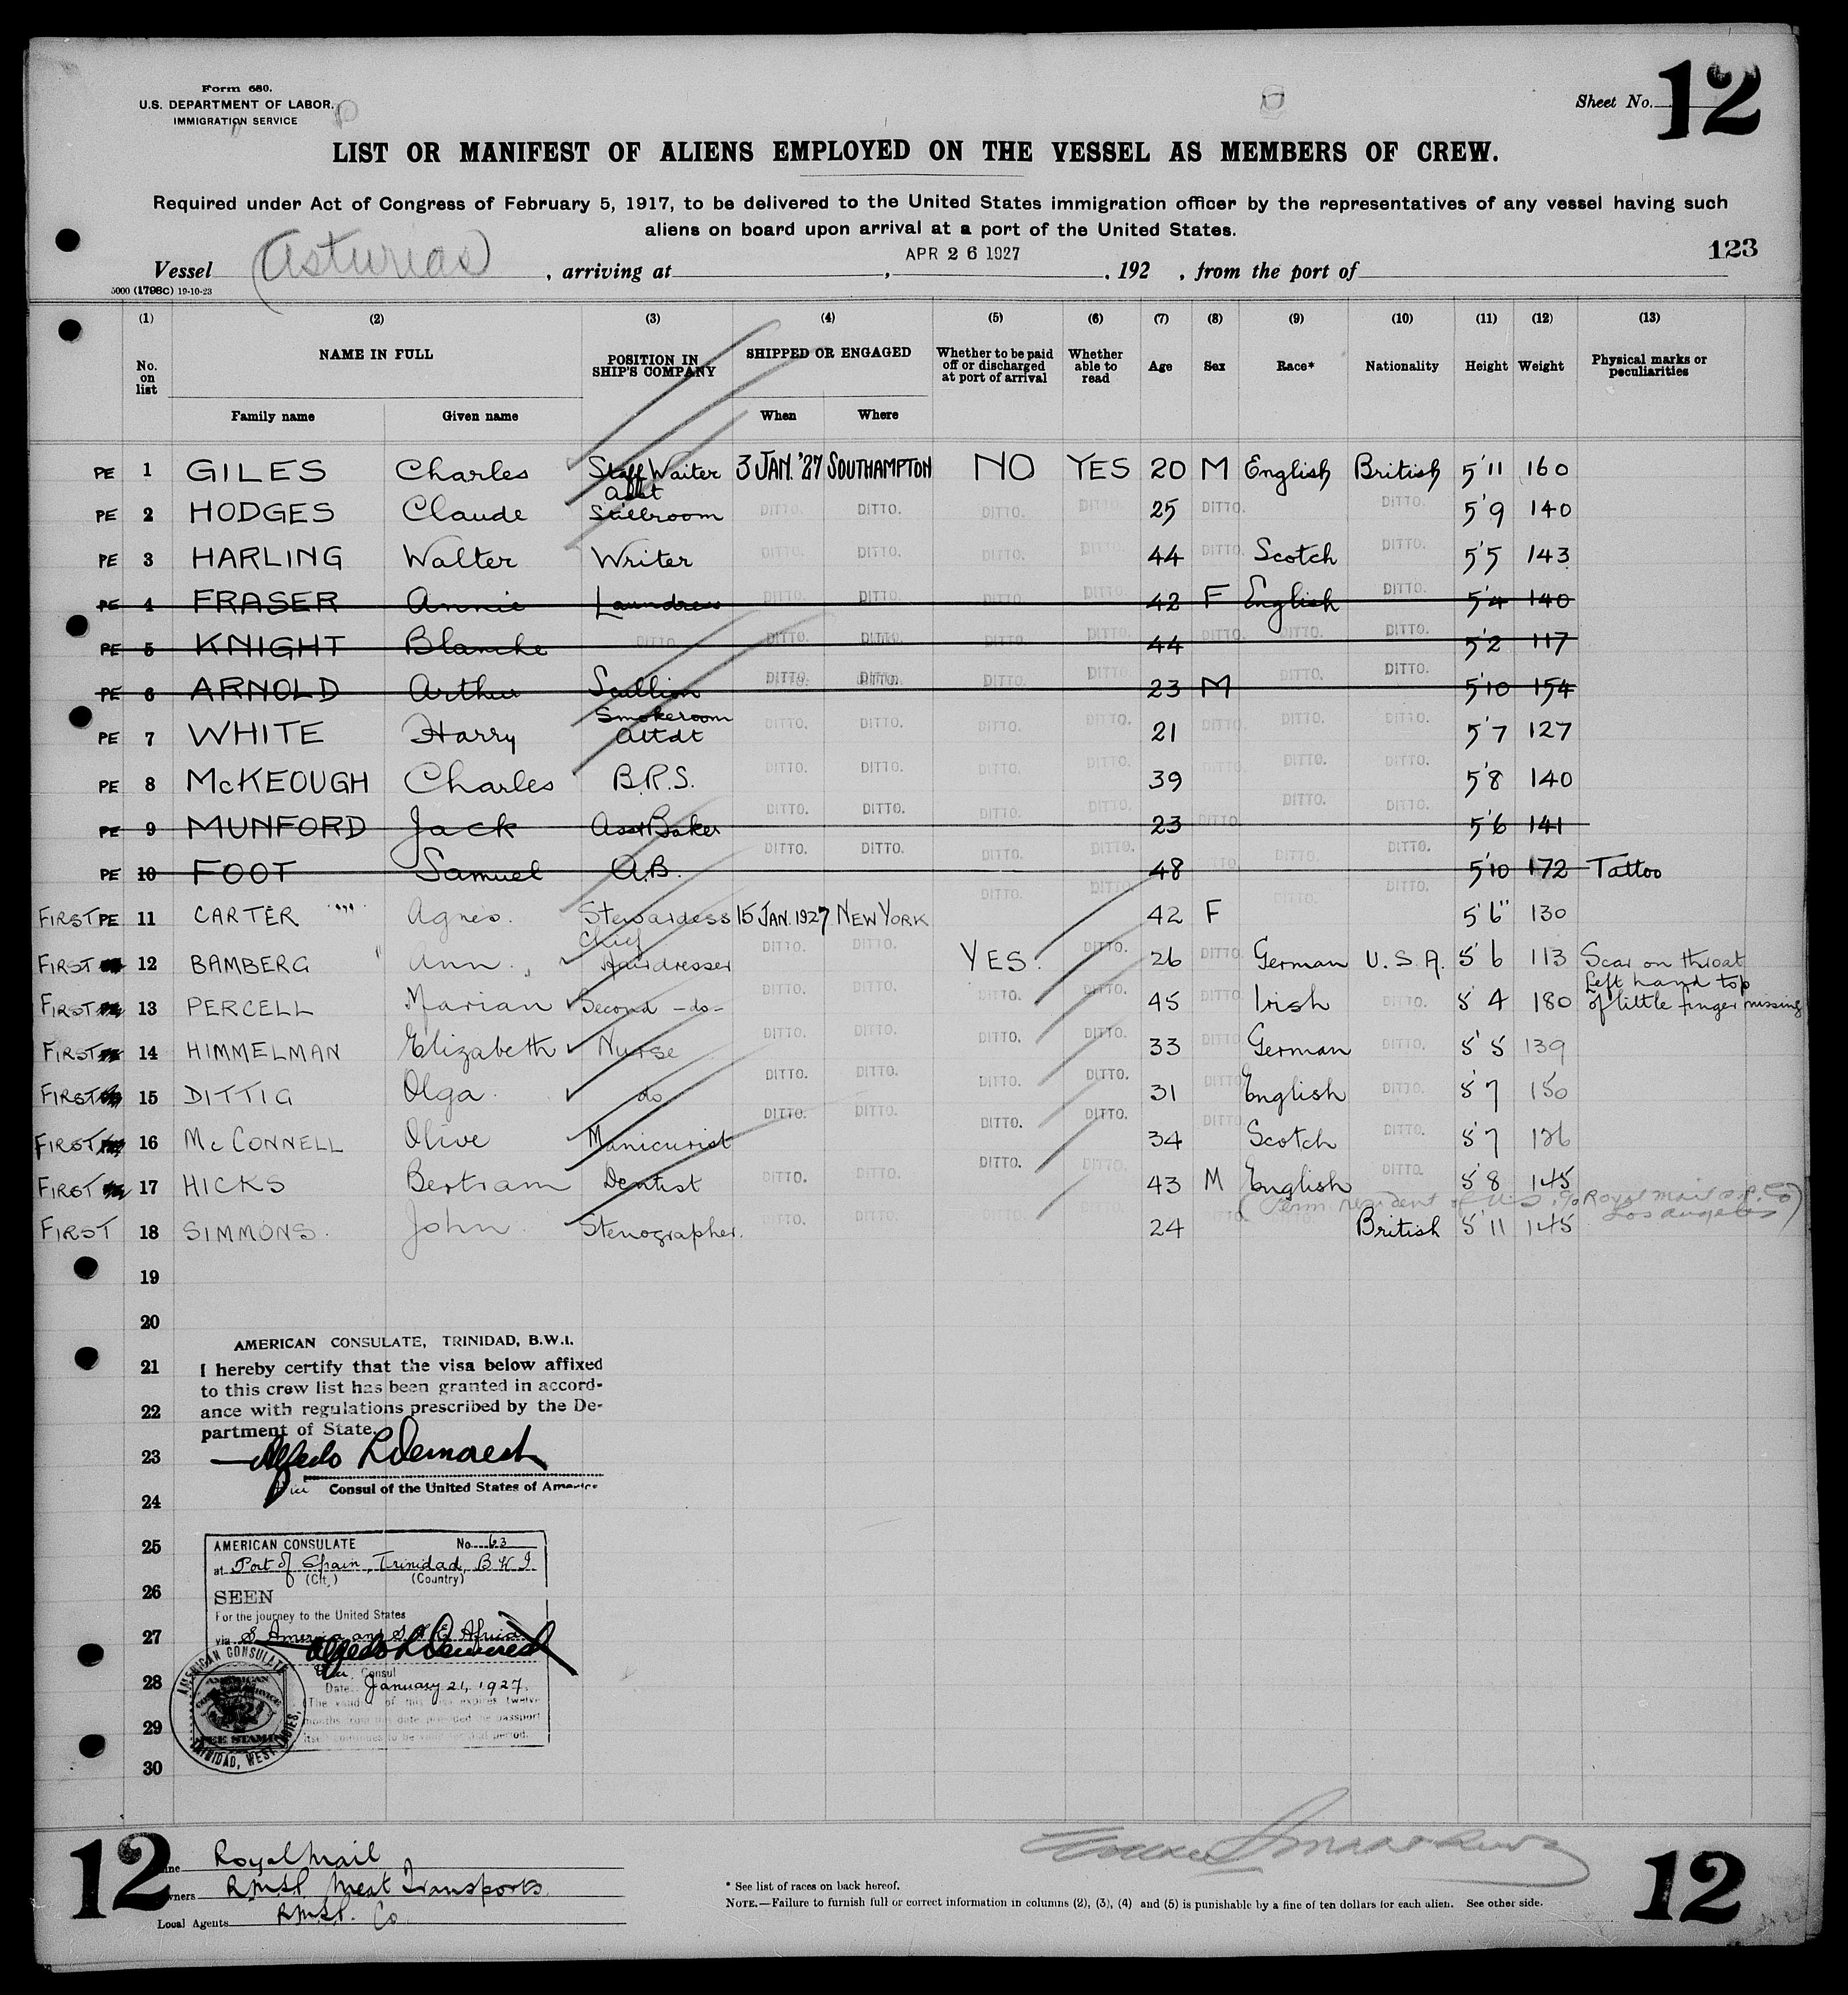 Form 680.
U.S. DEPARTMENT OF LABOR.
IMMIGRATION SERVICE
Sheet No. 12
LIST OR MANIFEST OF ALIENS EMPLOYED ON THE VESSEL AS MEMBERS OF CREW.
Required under Act of Congress of February 5, 1917, to be delivered to the United States immigration officer by the representatives of any vessel having such
aliens on board upon arrival at a port of the United States.
APR 26 1927
123
Vessel Asturias, arriving at , , 192 , from the port of
5000 (1798C) 19-10-23
(1) (2) (3) (4) (5) (6) (7) (8) (9) (10) (11) (12) (13)
No. on list NAME IN FULL POSITION IN SHIP'S COMPANY SHIPPED OR ENGAGED Whether to be paid off or discharged at port of arrival Whether able to read Age Sex Race* Nationality Height Weight Physical marks or peculiarities
Family name Given name When Where
PE 1 GILES Charles Staff Waiter 3 JAN. '27 SOUTHAMPTON NO YES 20 M English British 5'11 160
PE 2 HODGES Claude Asst Stillroom DITTO. DITTO. DITTO. DITTO. 25 DITTO. DITTO. 5'9 140
PE 3 HARLING Walter Writer DITTO. DITTO. DITTO. DITTO. 44 DITTO. Scotch DITTO. 5'5 143
PE 4 FRASER Annie Laundress DITTO. DITTO. DITTO. DITTO. 42 F English DITTO. 5'4 140
PE 5 KNIGHT Blanche DITTO. DITTO. DITTO. DITTO. DITTO. 44 DITTO. DITTO. DITTO. 5'2 117
PE 6 ARNOLD Arthur Scullion DITTO. DITTO. DITTO. DITTO. 23 M DITTO. DITTO. 5'10 154
PE 7 WHITE Harry Smokeroom Attdt DITTO. DITTO. DITTO. DITTO. 21 DITTO. DITTO. DITTO. 5'7 127
PE 8 McKEOUGH Charles B.R.S. DITTO. DITTO. DITTO. DITTO. 39 DITTO. DITTO. DITTO. 5'8 140
PE 9 MUNFORD Jack Asst Baker DITTO. DITTO. DITTO. DITTO. 23 DITTO. DITTO. DITTO. 5'6 141
PE 10 FOOT Samuel A.B. DITTO. DITTO. DITTO. DITTO. 48 DITTO. DITTO. DITTO. 5'10 172 Tattoo
FIRST PE 11 CARTER Agnes. Stewardess 15 JAN. 1927 NEW YORK DITTO. DITTO. 42 F DITTO. DITTO. 5'6" 130
FIRST 12 BAMBERG Ann. Chief Hairdresser DITTO. DITTO. YES. DITTO. 26 DITTO. German U.S.A. 5'6 113 Scar on throat
FIRST 13 PERCELL Marian Second -do- DITTO. DITTO. DITTO. DITTO. 45 DITTO. Irish DITTO. 5'4 180 Left hand top of little finger missing
FIRST 14 HIMMELMAN Elizabeth Nurse DITTO. DITTO. DITTO. DITTO. 33 DITTO. German DITTO. 5'5 139
FIRST 15 DITTIG Olga. do DITTO. DITTO. DITTO. DITTO. 31 DITTO. English DITTO. 5'7 150
FIRST 16 McCONNELL Olive Manicurist DITTO. DITTO. DITTO. DITTO. 34 DITTO. Scotch DITTO. 5'7 126
FIRST 17 HICKS Bertram Dentist DITTO. DITTO. DITTO. DITTO. 43 M English DITTO. 5'8 145
(Perm. resident of U.S. c/o Royal Mail S.P. Co Los Angeles)
FIRST 18 SIMMONS. John Stenographer. DITTO. DITTO. 24 DITTO. British 5'11 145
19
20
AMERICAN CONSULATE, TRINIDAD, B.W.I.
21 I hereby certify that the visa below affixed
to this crew list has been granted in accord-
22 ance with regulations prescribed by the De-
partment of State.
23 Alfredo L Demorest
Vice Consul of the United States of America
24
25 AMERICAN CONSULATE No. 63
at Port of Spain, Trinidad, B.W.I.
(City) (Country)
26 SEEN
For the journey to the United States
27 via S. America and S. & E. Africa
Alfredo L Demorest
Vice Consul
28 Date January 21, 1927.
(The validity of this visa expires twelve
29 months from this date provided the passport
itself continues to be valid for that period.
AMERICAN CONSULATE
TRINIDAD, WEST INDIES.
AMERICAN
FEE STAMP
30
12
Line Royal Mail
Owners R.M.S.P. Meat Transports.
Local Agents R.M.S.P. Co.
* See list of races on back hereof.
NOTE.—Failure to furnish full or correct information in columns (2), (3), (4) and (5) is punishable by a fine of ten dollars for each alien. See other side.
12